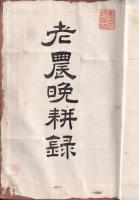 老農晩耕録